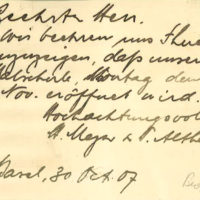 Geehrter Herr.
Wir beehren uns Ihnen
anzuzeigen, daß unser
Montag den
Nov. eröffnet wird.
Hochachtungsvoll
M. Meyer & P. Alth
Basel, 30 Oct. 07